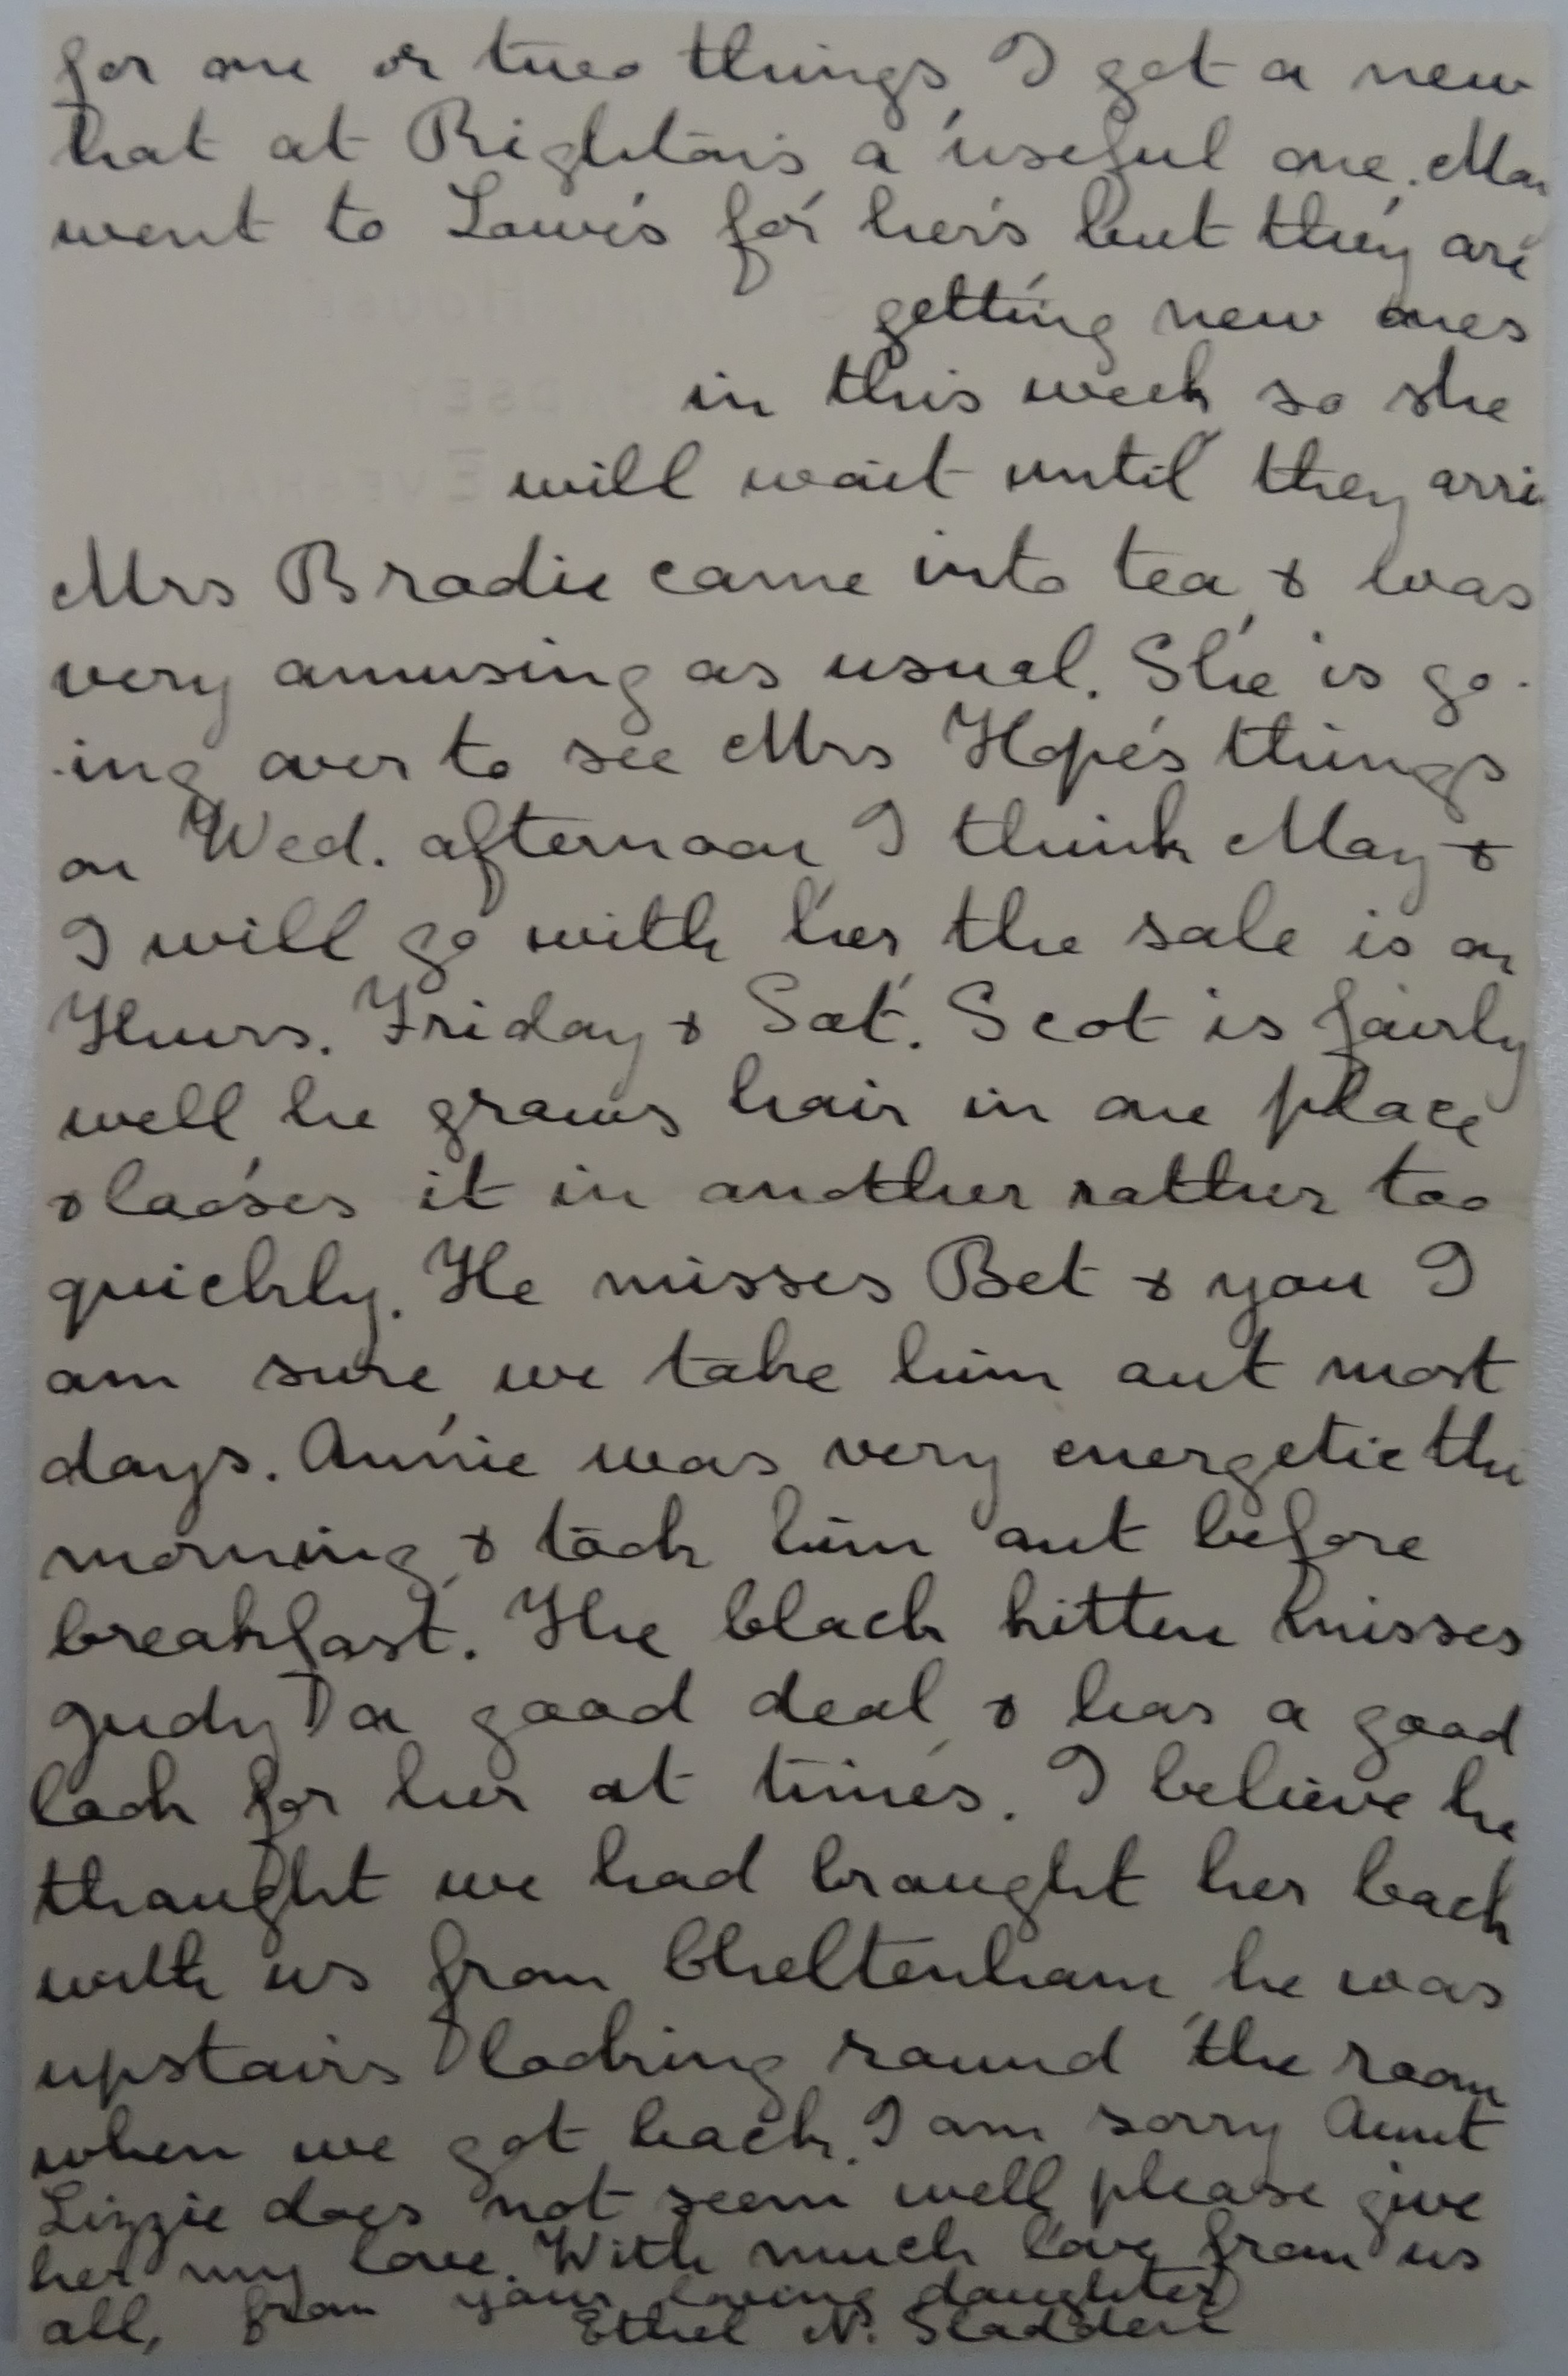 for one or two things, I got a new
hat at Rightons a useful one. May
went to Lawes for hers but they are
getting new ones
in this week, so she
will wait until they arri
Mrs Brodie came into tea, & was
very amusing as usual. She is go-
-ing over to see Mrs Hope's things
on Wed. afternoon, I think May &
I will go with her, the sale is on
Thurs. Friday & Sat. Scot is fairly
well he grows hair in one place
& looses it in another rather too
quickly. He misses Bet & you I
am sure, we take him out most
days. Annie was very energetic this
morning, & took him out before
breakfast. The black kitten misses
Judy a good deal, & has a good
look for her at times. I believe he
thought we had brought her back
with us from Cheltenham, he was
upstairs looking round the room
when we got back. I am sorry Aunt
Lizzie does not seem well, please give
her my love. With much love from us
all, from your loving daughter
Ethel N. Sladden